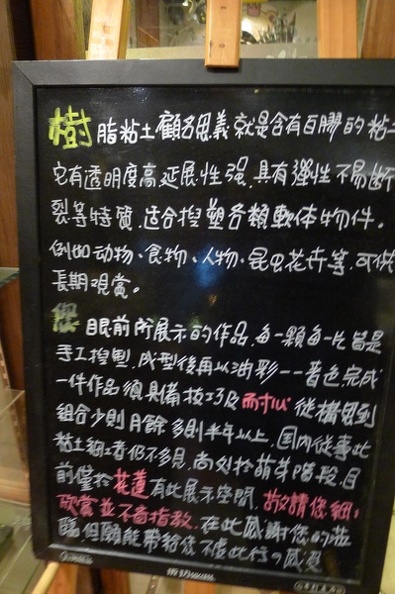 樹脂粘土顧名思義就是含有白膠的粘土
它有透明度高延展性強,具有彈性不易斷
裂等特質,适合捏塑各類軟体物件。
例如动物、食物、人物、昆虫花卉等,可供
長期观賞。
您眼前所展示的作品,每一顆每一片皆是
手工捏塑,成型後再以油彩一一著色完成
一件作品須具備技巧及耐心從構思到
組合少則月餘多則半年以上,国内從事此
粘土細工者仍不多見,尚处於萌芽階段,目
前僅於花蓮有此展示空間,敬請您細細
欣賞並不吝指教,在此感謝您的蒞
臨,但願能帶給您不虛此行の感覺